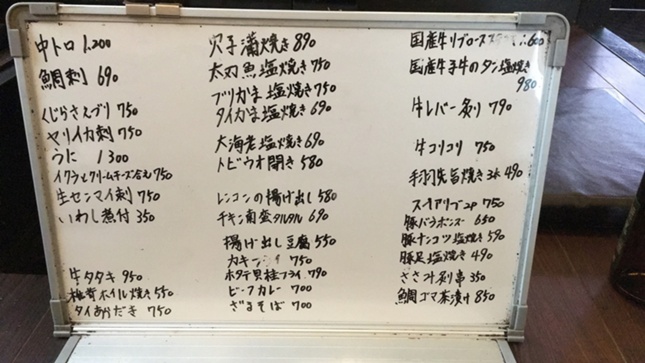 中トロ 1.200
鯛刺 690
くじらさえずり 750
ヤリイカ刺 750
うに 1300
イクラとクリームチーズ和え 750
生センマイ刺 750
いわし煮付 350
牛タタキ 950
椎茸ホイル焼き 550
タイあらだき 750
穴子蒲焼き 890
太刀魚塩焼き 750
ブリかま塩焼き 750
タイかま塩焼き 690
大海老塩焼き 690
トビウオ開き 580
レンコンの揚げ出し 580
チキン南蛮タルタル 690
揚げ出し豆腐 550
カキフライ 750
ホタテ貝柱フライ 790
ビーフカレー 700
ざるそば 700
国産牛リブロースステーキ 1.600
国産牛 牛のタン塩焼き
980
牛レバー炙り 790
牛コリコリ 750
手羽先旨焼き3本 490
スペアリブ2P 750
豚バラポンズ 650
豚ナンコツ塩焼き 590
豚足塩焼き 490
ささみ炙り串 350
鯛ゴマ茶漬け 850